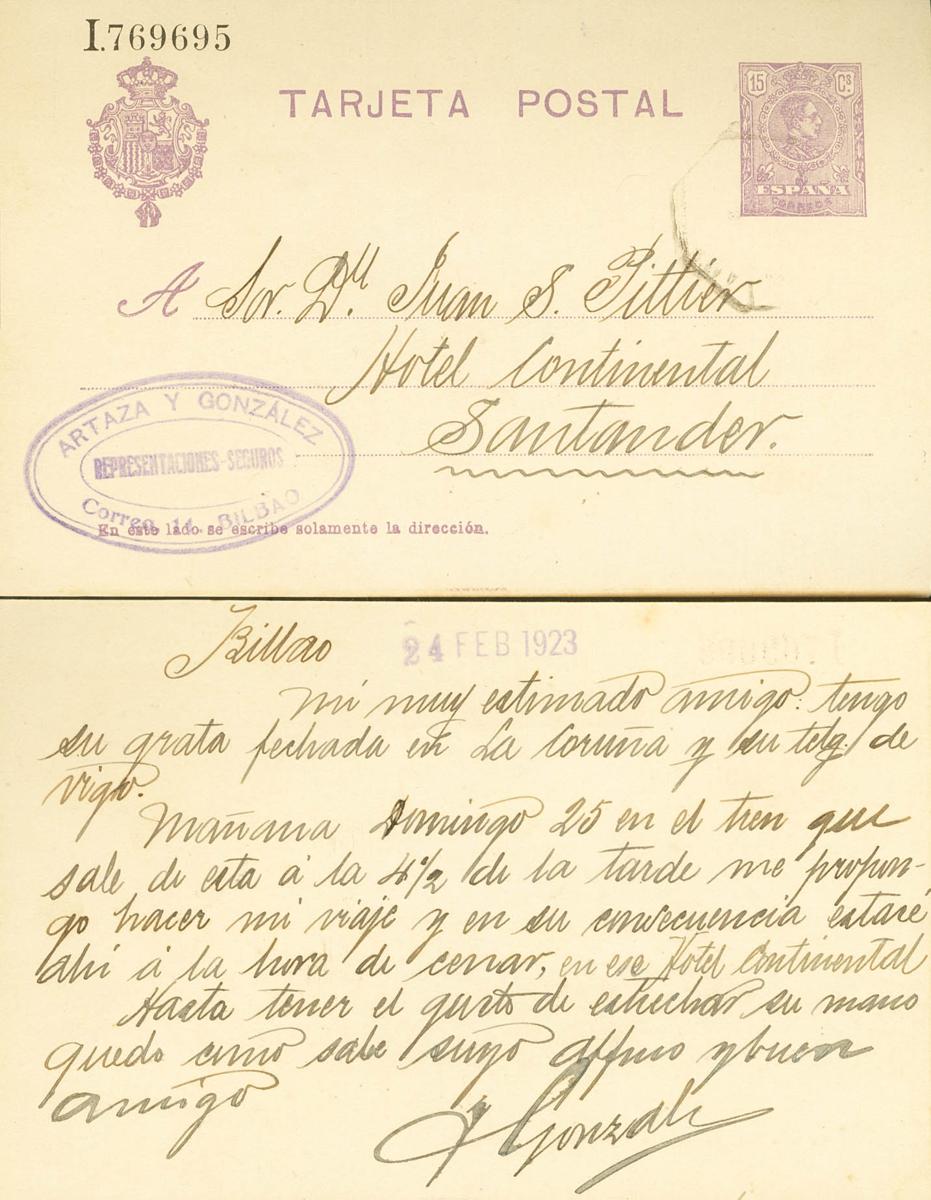 I.769695
TARJETA POSTAL
15 Cs
ESPAÑA
CORREOS
A Sor. Dn. Juan S. Pittier
Hotel Continental
Santander.
ARTAZA Y GONZÁLEZ
REPRESENTACIONES-SEGUROS
Correo, 11. BILBAO
En este lado se escribe solamente la dirección.
Bilbao 24 FEB 1923
Mi muy estimado amigo: tengo
su grata fechada en La Coruña y su telg. de
Vigo.
Mañana Domingo 25 en el tren que
sale de esta á la 4½ de la tarde me propon-
go hacer mi viaje y en su consecuencia estaré
ahi á la hora de cenar, en ese Hotel Continental
Hasta tener el gusto de estrechar su mano
quedo como sabe suyo affmo y buen
amigo
Gonzalez